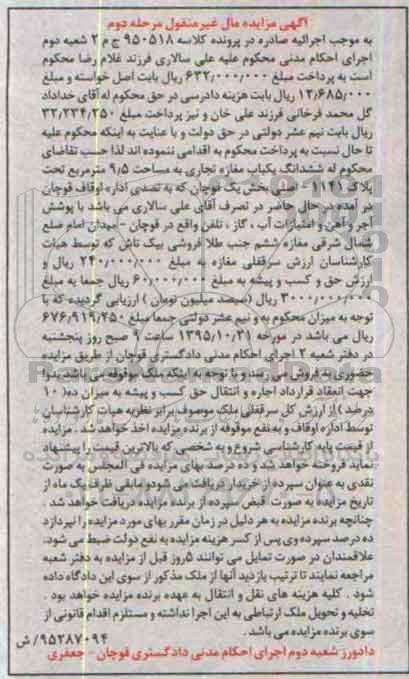 آگهی مزایده مال غیرمنقول مرحله دوم
به موجب اجرائیه صادره در پرونده کلاسه ۹۵۰۵۱۸ ج م ۲ شعبه دوم
اجرای احکام مدنی محکوم علیه علی سالاری فرزند غلام رضا محکوم
است به پرداخت مبلغ ۶۳۲/۰۰۰/۰۰۰ ریال بابت اصل خواسته و مبلغ
۱۲/۶۸۵/۰۰۰ ریال بابت هزینه دادرسی در حق محکوم له آقای خداداد
گل محمد فرخانی فرزند علی خان و نیز پرداخت مبلغ ۳۲/۲۳۴/۲۵۰
ریال بابت نیم عشر دولتی در حق دولت و با عنایت به اینکه محکوم علیه
تا حال نسبت به پرداخت محکوم به اقدامی ننموده اند لذا حسب تقاضای
محکوم له ششدانگ یکباب مغازه تجاری به مساحت ۹/۵ مترمربع تحت
پلاک ۱۱۴۱ - اصلی بخش یک قوچان که به تصدی اداره اوقاف قوچان
در آمده در حال حاضر در تصرف آقای علی سالاری می باشد با پوشش
آجر و آهن و امتیازات آب ، گاز ، تلفن واقع در قوچان - میدان امام ضلع
شمال شرقی مغازه ششم جنب طلا فروشی بیک تاش که توسط هیات
کارشناسان ارزش سرقفلی مغازه به مبلغ ۲۴۰/۰۰۰/۰۰۰ ریال و
ارزش حق و کسب و پیشه به مبلغ ۶۰/۰۰۰/۰۰۰ ریال جمعا به مبلغ
۳۰۰۰/۰۰۰/۰۰۰ ریال (سیصد میلیون تومان ) ارزیابی گردیده که با
توجه به میزان محکوم به و نیم عشر دولتی جمعا مبلغ ۶۷۶/۹۱۹/۲۵۰
ریال می باشد در مورخه ۱۳۹۵/۱۰/۲۱ ساعت ۹ صبح روز پنجشنبه
در دفتر شعبه ۲ اجرای احکام مدنی دادگستری قوچان از طریق مزایده
حضوری به فروش می رسد و با توجه به اینکه ملک موقوفه می باشد بدوا
جهت انعقاد قرارداد اجاره و انتقال حق کسب و پیشه به میزان ده( ۱۰
درصد ) از ارزش کل سرقفلی ملک موصوف برابر نظریه هیات کارشناسان
توسط اداره اوقاف و به نفع موقوفه از برنده مزایده اخذ خواهد شد . مزایده
از قیمت پایه کارشناسی شروع و به شخصی که بالاترین قیمت را پیشنهاد
نماید فروخته خواهد شد و ده درصد بهای مزایده فی المجلس به صورت
نقدی به عنوان سپرده از خریدار دریافت می شود و مابقی ظرف یک ماه از
تاریخ مزایده به صورت قبض سپرده از برنده مزایده دریافت خواهد شد .
چنانچه برنده مزایده به هر دلیل در زمان مقرر بهای مورد مزایده را نپردازد
ده درصد سپرده وی پس از کسر هزینه مزایده به نفع دولت ضبط می شود.
علاقمندان در صورت تمایل می توانند ۵روز قبل از مزایده به دفتر شعبه
مراجعه نمایند تا ترتیب بازدید آنها از ملک مذکور از سوی این دادگاه داده
شود . کلیه هزینه های نقل و انتقال به عهده برنده مزایده خواهد بود .
تخلیه و تحویل ملک ارتباطی به این اجرا نداشته و مستلزم اقدام قانونی از
سوی برنده مزایده می باشد .
۹۵۲۸۷۰۹۴/ ش
دادورز شعبه دوم اجرای احکام مدنی دادگستری قوچان - جعفری